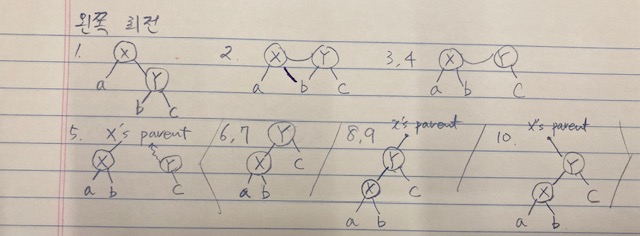 왼쪽 회전
1. 2. 3,4
X X Y X Y
a Y a b c a b c
b c
5. X's parent 6,7 Y 8,9 X's parent 10. X's parent
X Y X c Y Y
a b c a b X c X c
a b a b